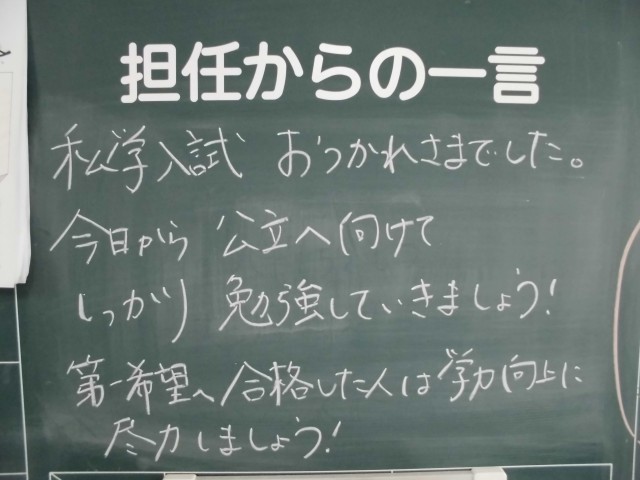 担任からの一言
私学入試 おつかれさまでした。
今日から 公立へ向けて
しっかり 勉強していきましょう!
第一希望へ合格した人は学力向上に
尽力しましょう!